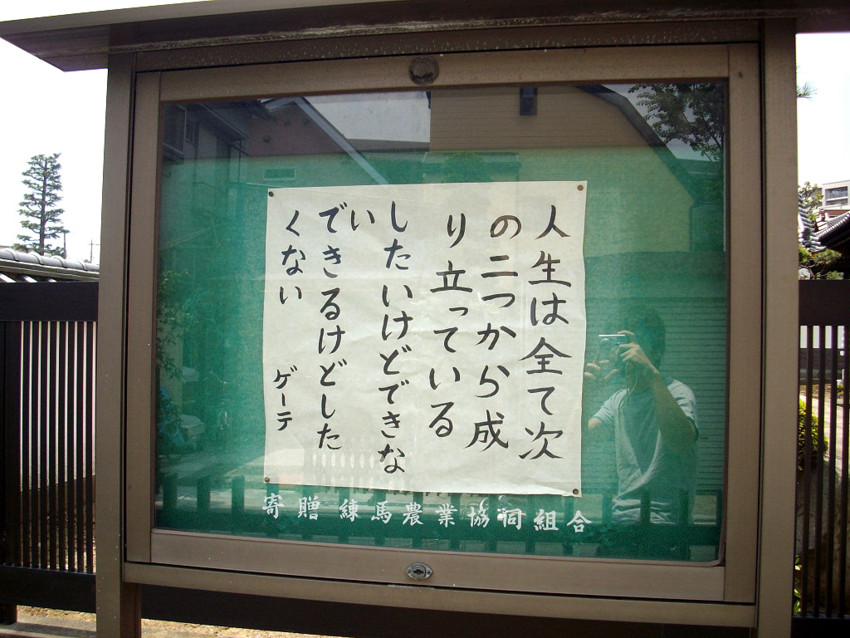 人生は全て次
の二つから成
り立っている
したいけどできな
い
できるけどした
くない
ゲーテ
寄贈 練馬農業協同組合